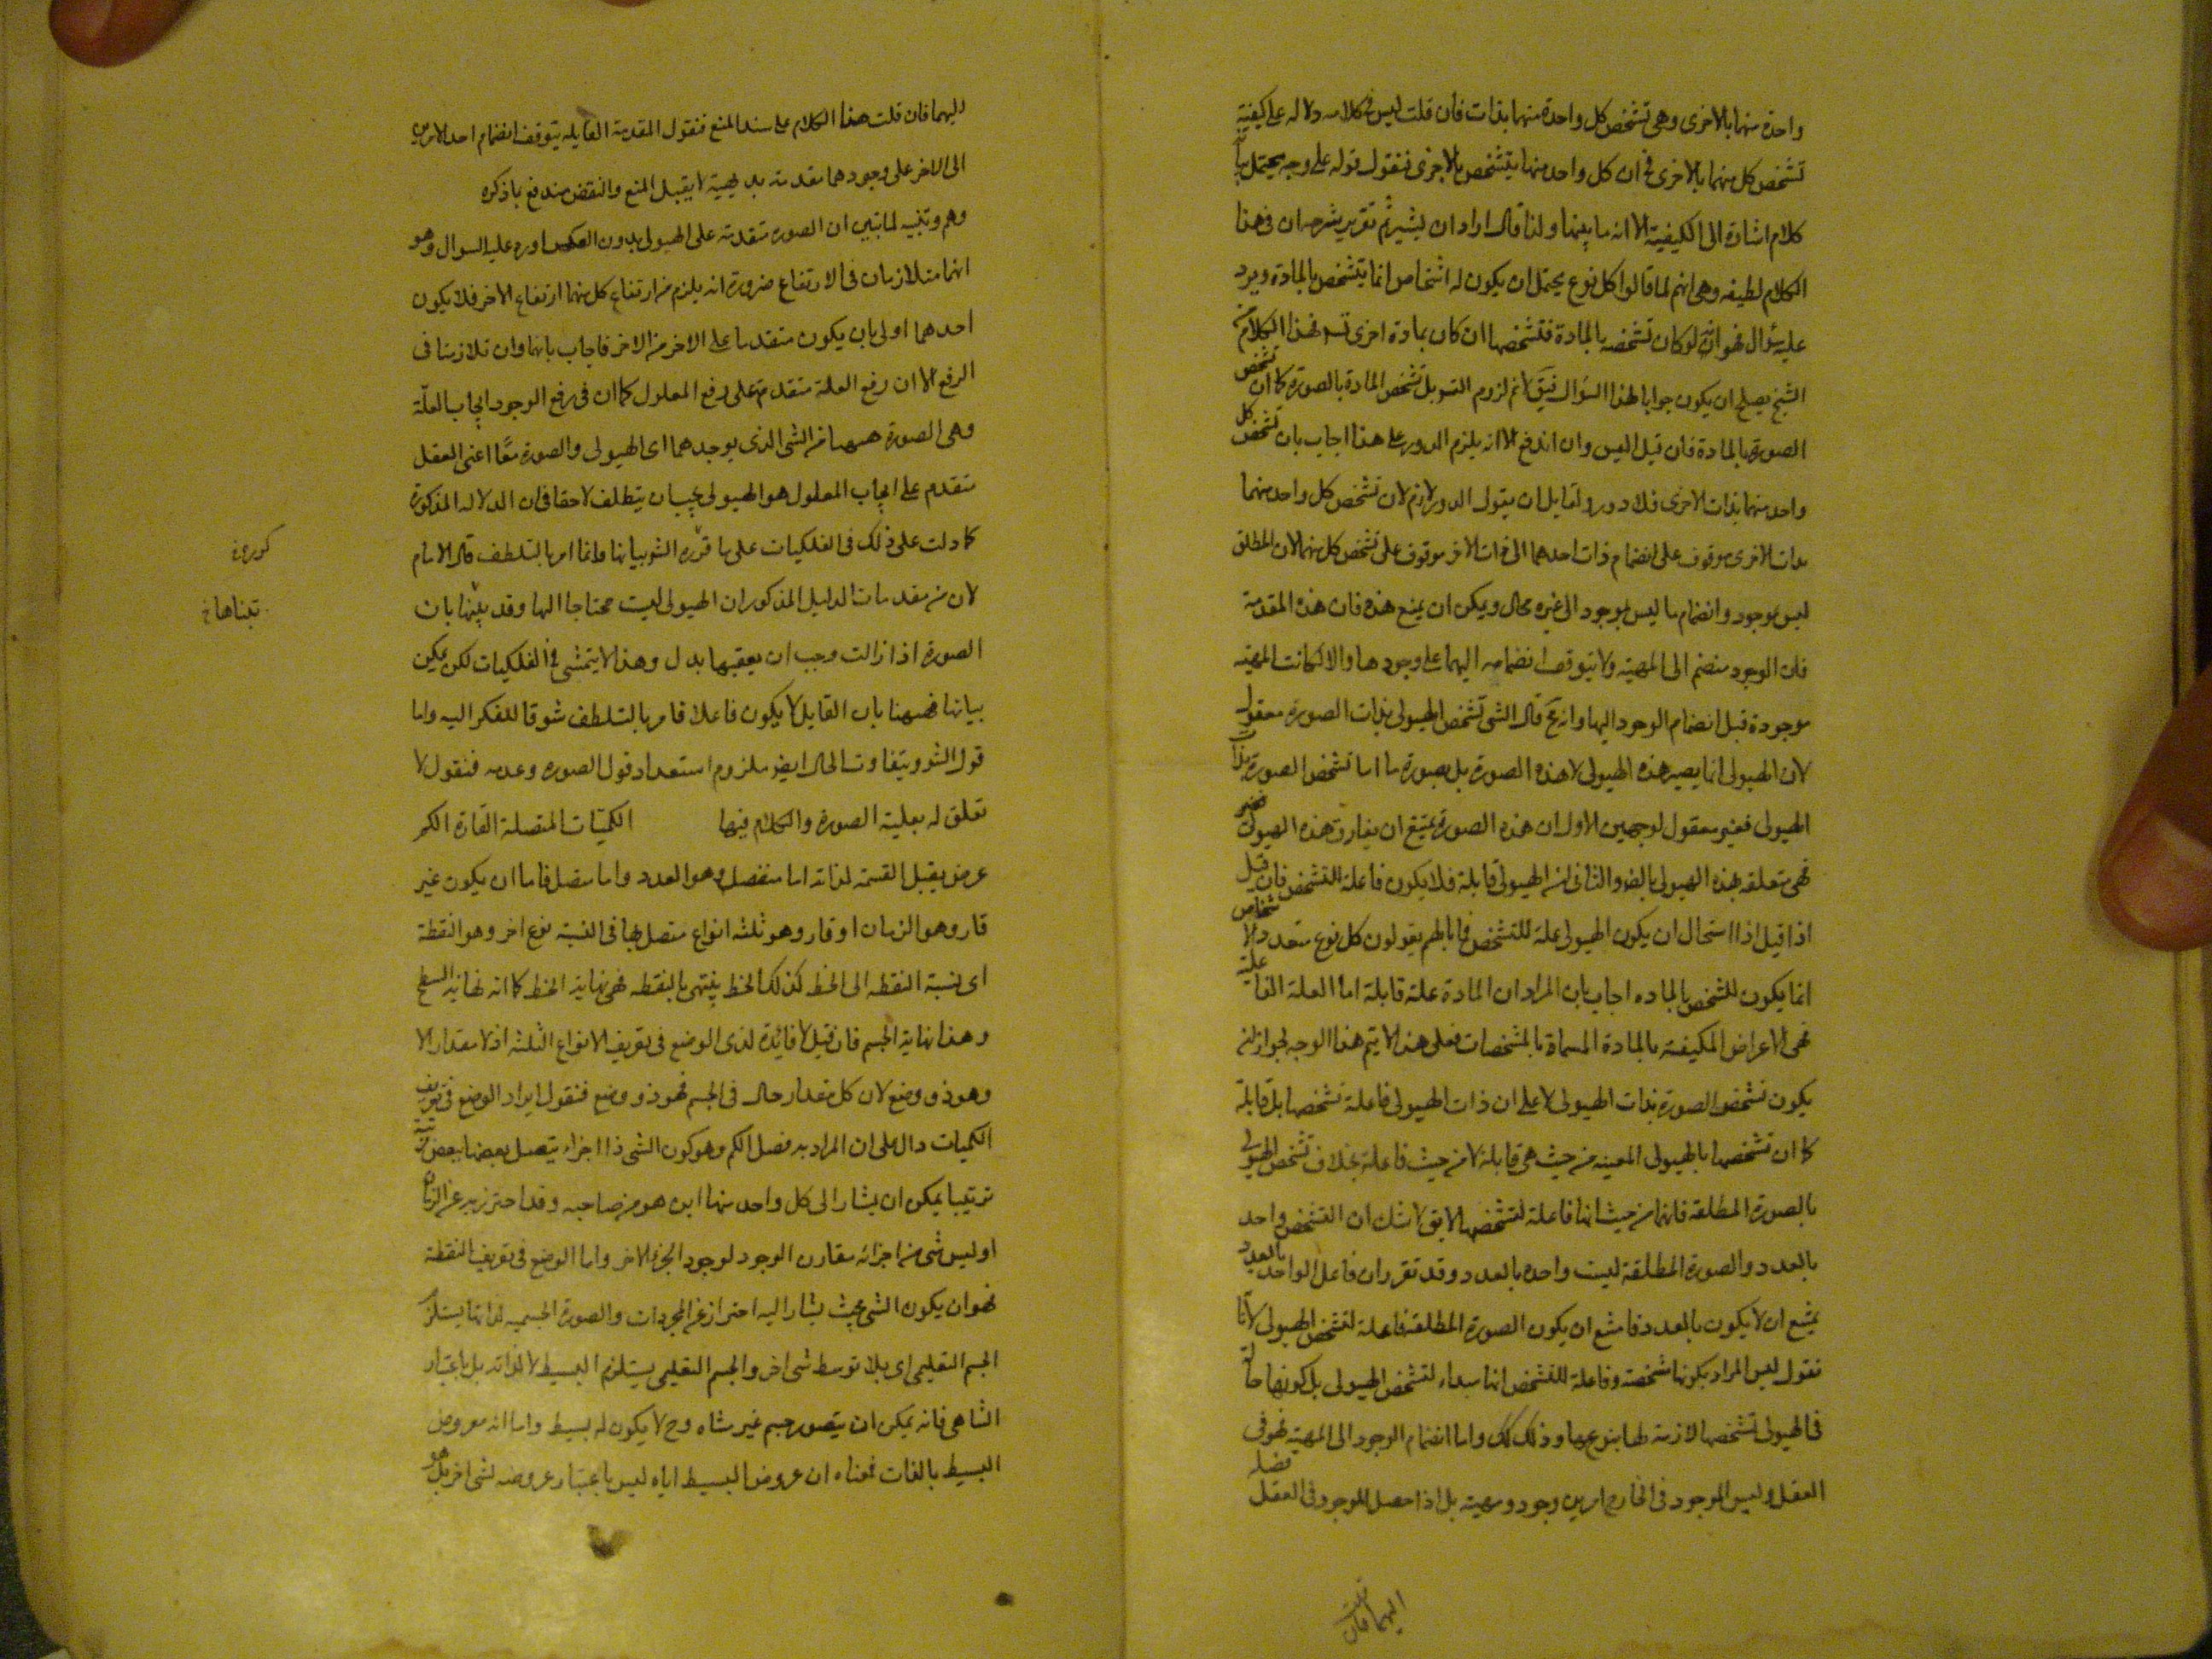 واحدة منهما بالاخرى وهى تشخص كل واحدة منهما بذات فان قلت ليس فى كلامه دلاله على كيفية
تشخص كل منهما بالاخرى فى ان كل واحد منهما يتشخص بالاخرى فنقول قوله على وجه يحتمل
كلام اشارة الى الكيفية الا انه ما بينها ولذا قال اراد ان يشير ثم تقرير شرحه ان فى هذا
الكلام لطيفه وهى انهم لما قالوا كل نوع يحتمل ان يكون له اشخاص انما يتشخص بالمادة ويرد
عليه سؤال فهو انه لو كان تشخصه بالمادة فتشخصها ان كان بمادة اخرى تسه فهذا الكلام من
الشيخ يصلح ان يكون جوابا لهذا السؤال فيق لانم لزوم التسو بل تشخص المادة بالصورة كما ان تشخص
الصورة بالمادة فان قيل اليس وان اندفع الا انه يلزم الدور على هذا اجاب بان تشخص كل
واحد منهما بذات الاخرى فلا دور ولقايل ان يقول الدور لازم لان تشخص كل واحد منهما
بذات الاخرى موقوف على انضمام ذات احدهما الى ذات الاخر موقوف على تشخص كل منهما لان المطلق
ليس بموجود وانضمام ما ليس بموجود الى غيره محال ويمكن ان يمنع هذه فان هذه المقدمة
فان الوجود منضم الى المهية ولا يتوقف انضمامه اليهما على وجودها والا لكانت المهية
موجودة قبل انضمام الوجود اليها وانه مح قال الشى تشخص الهيولى بذات الصورة معقول
لان الهيولى انما يصير هذه الهيولى لا هذه الصورة بل بصورة ما اما تشخص الصورة بذات
الهيولى فغير معقول لوجهين الاول ان هذه الصورة يمتنع ان يفارق هذه الهيولى
فهى متعلقه بهذه الهيولى بالضر والثانى ان الهيولى قابلة فلا يكون فاعلة التشخص فان قيل
اذا قيل اذا استحال ان يكون الهيولى علة للتشخص فما بالهم يقولون كل نوع متعدد الاشخاص
انما يكون للشخص بالماده اجاب بان المراد ان المادة علة قابلة اما العلة الفاعلية
فهى الاعراض المكيفة بالمادة المسماة بالمشخصات فعلى هذا لا يتم هذا الوجه لجواز ان
يكون تشخص الصورة بذات الهيولى لا على ان ذات الهيولى فاعلة تشخصها بل قابلة
كما ان تشخصها بالهيولى المعينه من حيث هى قابلة لا من حيث فاعلة بخلاف تشخص الهيولى
بالصورة المطلقة فانها من حيث انها فاعلة لتشخصها لايق لا شك ان التشخص واحد
بالعدد والصورة المطلقة ليست واحده بالعدد وقد تقرر ان فاعل الواحد بالعدد
يمتنع ان لا يكون بالعدد فامتنع ان يكون الصورة المطلقة فاعلة لتشخص الهيولى لانا
نقول ليس المراد بكونها مشخصة وفاعلة للتشخص انها مبداء لتشخص الهيولى بل كونها حالة
فى الهيولى تشخصها لازمة لها بنوعها وذلك كك واما انضمام الوجود الى المهية فهو فى
العقل وليس الموجود فى الخارج امرين وجود ومهية بل اذا حصل الموجود فى العقل فضله
اليهما فان قلت
اليهما فان قلت هذا الكلام على سند المنع فنقول المقدمة القايله بتوقف انضمام احد الامرين
الى الاخر على وجودهما مقدمة بديهية لا يقبل المنع والنقض مندفع بما ذكره
وهم وتنبيه لما تبين ان الصورة متقدمة على الهيولى بدون العكس اورد عليه السوال وهو
انهما متلازمان فى الارتفاع ضرورة انه يلزم من ارتفاع كل منهما ارتفاع الاخر فلا يكون
احدهما اولى بان يكون متقدما على الاخر من الاخر فاجاب بانهما وان تلازمتا فى
الرفع الا ان رفع العلة متقدم على رفع المعلول كما ان فى رفع الوجود ايجاب العلة
وهى الصورة ههنا من الشى الذى يوجدهما اى الهيولى والصورة معًا اعنى العقل
متقدم على ايجاب المعلول هو الهيولى يجب ان يتطلف لاحقا فى ان الدلاله المذكورة
كما دلت على ذلك فى الفلكيات على ما قرره الشو بيانها وانما امر بالتلطف قال الامام
لان من مقدمات الدليل المذكور ان الهيولى ليست محتاجا اليها وقد بينها بان
الصورة اذا زالت وجب ان يعقبها بدل وهذا لا يتمشى فى الفلكيات لكن يمكن
بيانها فيهنا بان القابل لا يكون فاعلا فامر بالتلطف شوقا للفكر اليه واما
قول الشو ويتفاوت الحال ايضا ملزوم استعداد قول الصوره وعدمه فنقول لا
تعلق له بعلية الصورة والكلام فيها الكميات المتصلة القارة الكم
عرض يقبل القسمة لذاته اما منفصل وهو العدد واما متصل فاما ان يكون غير
قار وهو الزمان او قار وهو ثلثه انواع متصل بها فى النسبة نوع اخر وهو النقطة
اى نسبة النقطه الى الخط كذلك الخط ينتهى بالنقطه فهى نهاية الخط كما انه نهاية السطح
وهذا نهاية الجسم فان قيل لا فائدة لذى الوضع فى تعريف الانواع الثلثه اذ لا مقدار الا
وهو ذو وضع لان كل مقدار حال فى الجسم فهو ذو وضع فنقول ايراد الوضع فى تعريف
الكميات دال على ان المراد به فصل الكم وهو كون الشى ذا اجزاء يتصل بعضها ببعض
ترتيبا يمكن ان يشار الى كل واحد منها اين هو من صاحبه وقد احترز به عن الزمان
او ليس شى من اجزائه مقارن الوجود لوجود الجزء الاخر واما الوضع فى تعريف النقطة
فهو ان يكون الشى بحيث يشار اليه احتراز عن المجردات والصورة الجسميه لذاتها يستلزم
الجسم التعليمى اى بلا توسط شى اخر والجسم التعليمى يستلزم البسيط لا لذاته بل باعتبار
التناهى فانه يمكن ان يتصور جسم غير متناه وح لا يكون له بسيط واما انه معروض
البسيط بالذات فمعناه ان عروض البسيط اياه ليس باعتبار عروضه لشى اخر بل هو